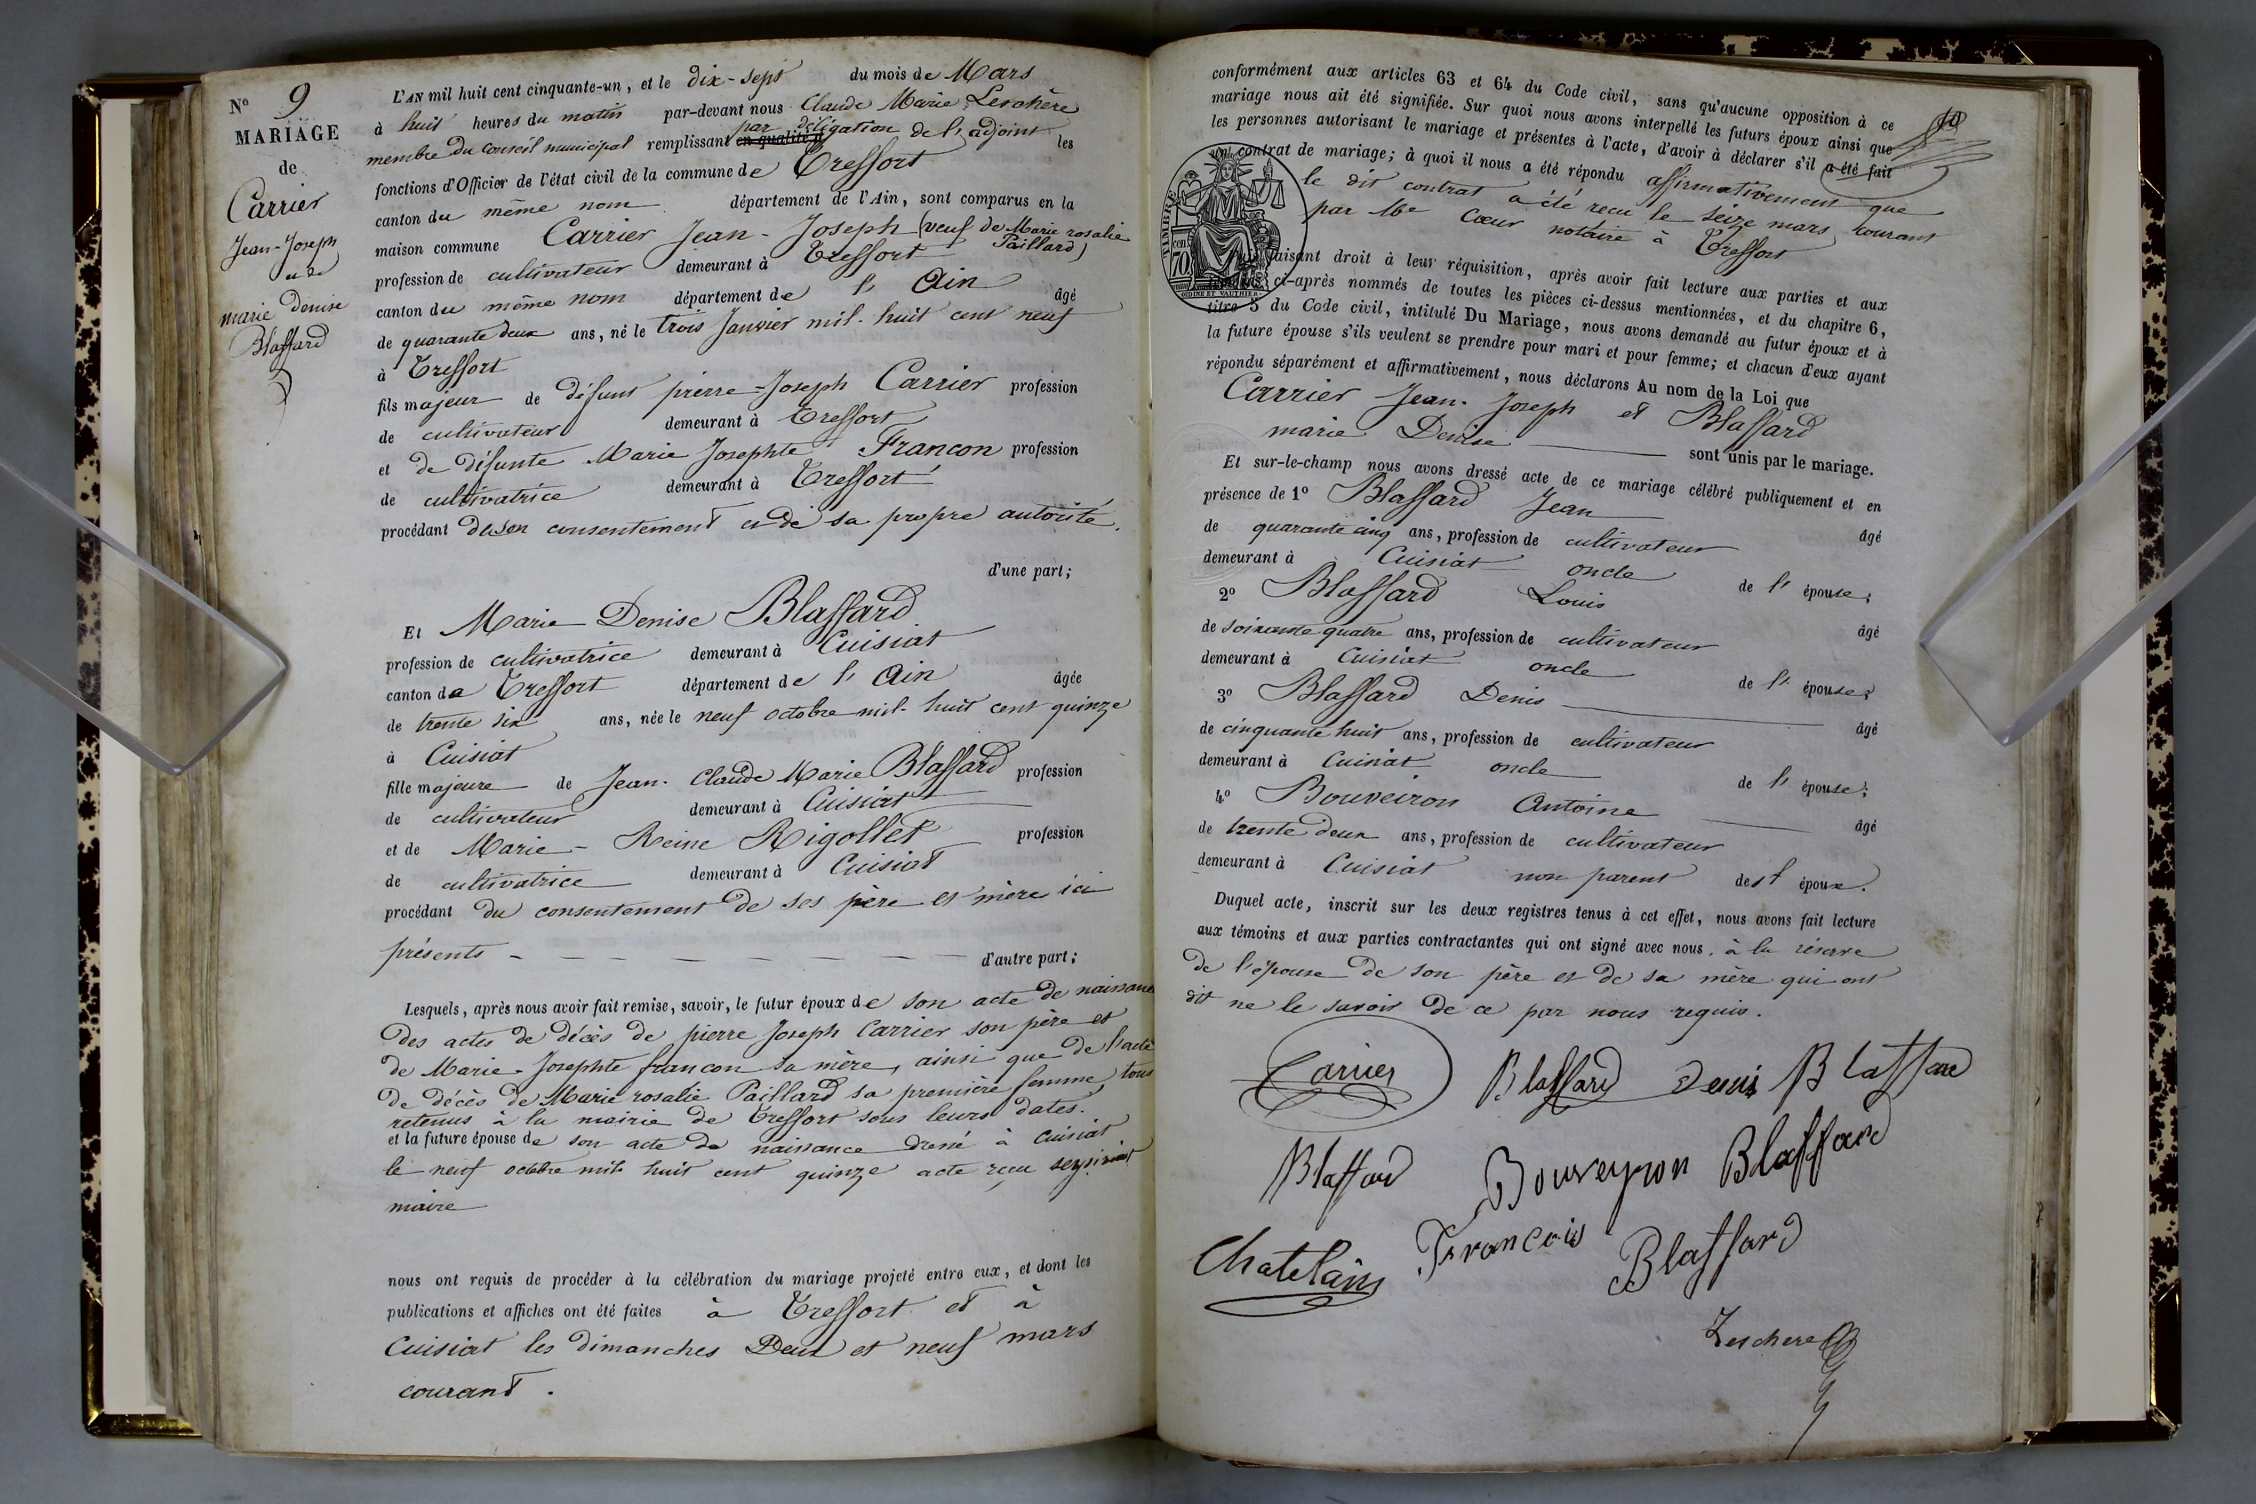 N° 9
MARIAGE
de
Carrier
Jean-Joseph
et de
marie Denise
Blaffard
L'AN mil huit cent cinquante-un, et le dix-sept du mois de Mars
à huit heures du matin par-devant nous Claude Marie Leschère
membre du Conseil municipal remplissant par déligation de l'adjoint les
fonctions d'Officier de l'état civil de la commune de Treffort
canton du même nom département de l'Ain, sont comparus en la
maison commune Carrier Jean-Joseph (veuf de Marie rosalie Paillard)
profession de cultivateur demeurant à Treffort
canton du même nom département de l'Ain âgé
de quarante deux ans, né le trois Janvier mil-huit cent neuf
à Treffort
fils majeur de défunt pierre-Joseph Carrier profession
de cultivateur demeurant à Treffort
et de défunte Marie Josephte Francon profession
de cultivatrice demeurant à Treffort
procédant de son consentement et de sa propre autorité.
d'une part;
Et Marie Denise Blaffard
profession de cultivatrice demeurant à Cuisiat
canton de Treffort département de l'Ain âgée
de trente six ans, née le neuf octobre mil-huit cent quinze
à Cuisiat
fille majeure de Jean-Claude Marie Blaffard profession
de cultivateur demeurant à Cuisiat
et de Marie-Reine Rigollet profession
de cultivatrice demeurant à Cuisiat
procédant du consentement de ses père et mère ici
présents - - - - - - - - d'autre part;
Lesquels, après nous avoir fait remise, savoir, le futur époux de son acte de naissance
des actes de décès de pierre Joseph Carrier son père et
de Marie-Josephte francon sa mère, ainsi que de l'acte
de décès de Marie rosalie Paillard sa première femme, tous
retenus à la mairie de Treffort sous leurs dates.
et la future épouse de son acte de naissance dressé à Cuisiat
le neuf octobre mil huit cent quinze acte reçu
maire
nous ont requis de procéder à la célébration du mariage projeté entre eux, et dont les
publications et affiches ont été faites à Treffort et à
Cuisiat les dimanches Deux et neuf mars
courant.
10
conformément aux articles 63 et 64 du Code civil, sans qu'aucune opposition à ce
mariage nous ait été signifiée. Sur quoi nous avons interpellé les futurs époux ainsi que
les personnes autorisant le mariage et présentes à l'acte, d'avoir à déclarer s'il a été fait
un contrat de mariage; à quoi il nous a été répondu affirmativement que
le dit contrat a été reçu le seize mars courant
par Me Cœur notaire à Treffort
TIMBRE
70
OUDINÉ ET VAUTHIER
faisant droit à leur réquisition, après avoir fait lecture aux parties et aux
ci-après nommés de toutes les pièces ci-dessus mentionnées, et du chapitre 6,
titre 5 du Code civil, intitulé Du Mariage, nous avons demandé au futur époux et à
la future épouse s'ils veulent se prendre pour mari et pour femme; et chacun d'eux ayant
répondu séparément et affirmativement, nous déclarons Au nom de la Loi que
Carrier Jean-Joseph et Blaffard
marie Denise sont unis par le mariage.
Et sur-le-champ nous avons dressé acte de ce mariage célébré publiquement et en
présence de 1° Blaffard Jean âgé
de quarante cinq ans, profession de cultivateur
demeurant à Cuisiat oncle de l'épouse;
2° Blaffard Louis âgé
de soixante quatre ans, profession de cultivateur
demeurant à Cuisiat oncle de l'épouse;
3° Blaffard Denis âgé
de cinquante huit ans, profession de cultivateur
demeurant à Cuisiat oncle de l'épouse;
4° Bouveiron Antoine âgé
de trente deux ans, profession de cultivateur
demeurant à Cuisiat non parent des époux.
Duquel acte, inscrit sur les deux registres tenus à cet effet, nous avons fait lecture
aux témoins et aux parties contractantes qui ont signé avec nous. à la réserve
de l'épouse de son père et de sa mère qui ont
dit ne le savoir de ce par nous requis.
Carrier Blaffard Denis Blaffard
Blaffard Bouveyron Blaffard
Chatelain François Blaffard
Leschere